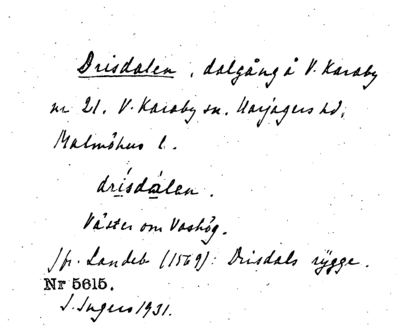 Drisdalen, dalgång å V. Karaby
nr 21. V. Karaby sn. Harjagers hd.
Malmöhus l.
drísdàlen.
Väster om Voshög.
Jfr. Landeb (1569): Drisdals rÿgge.
Nr 5615.
I. Ingers 1931.